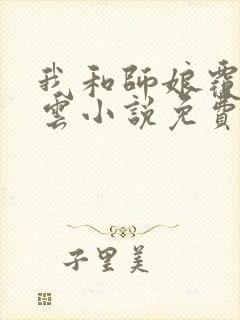 我和師娘覆
雲小說免費
子里美